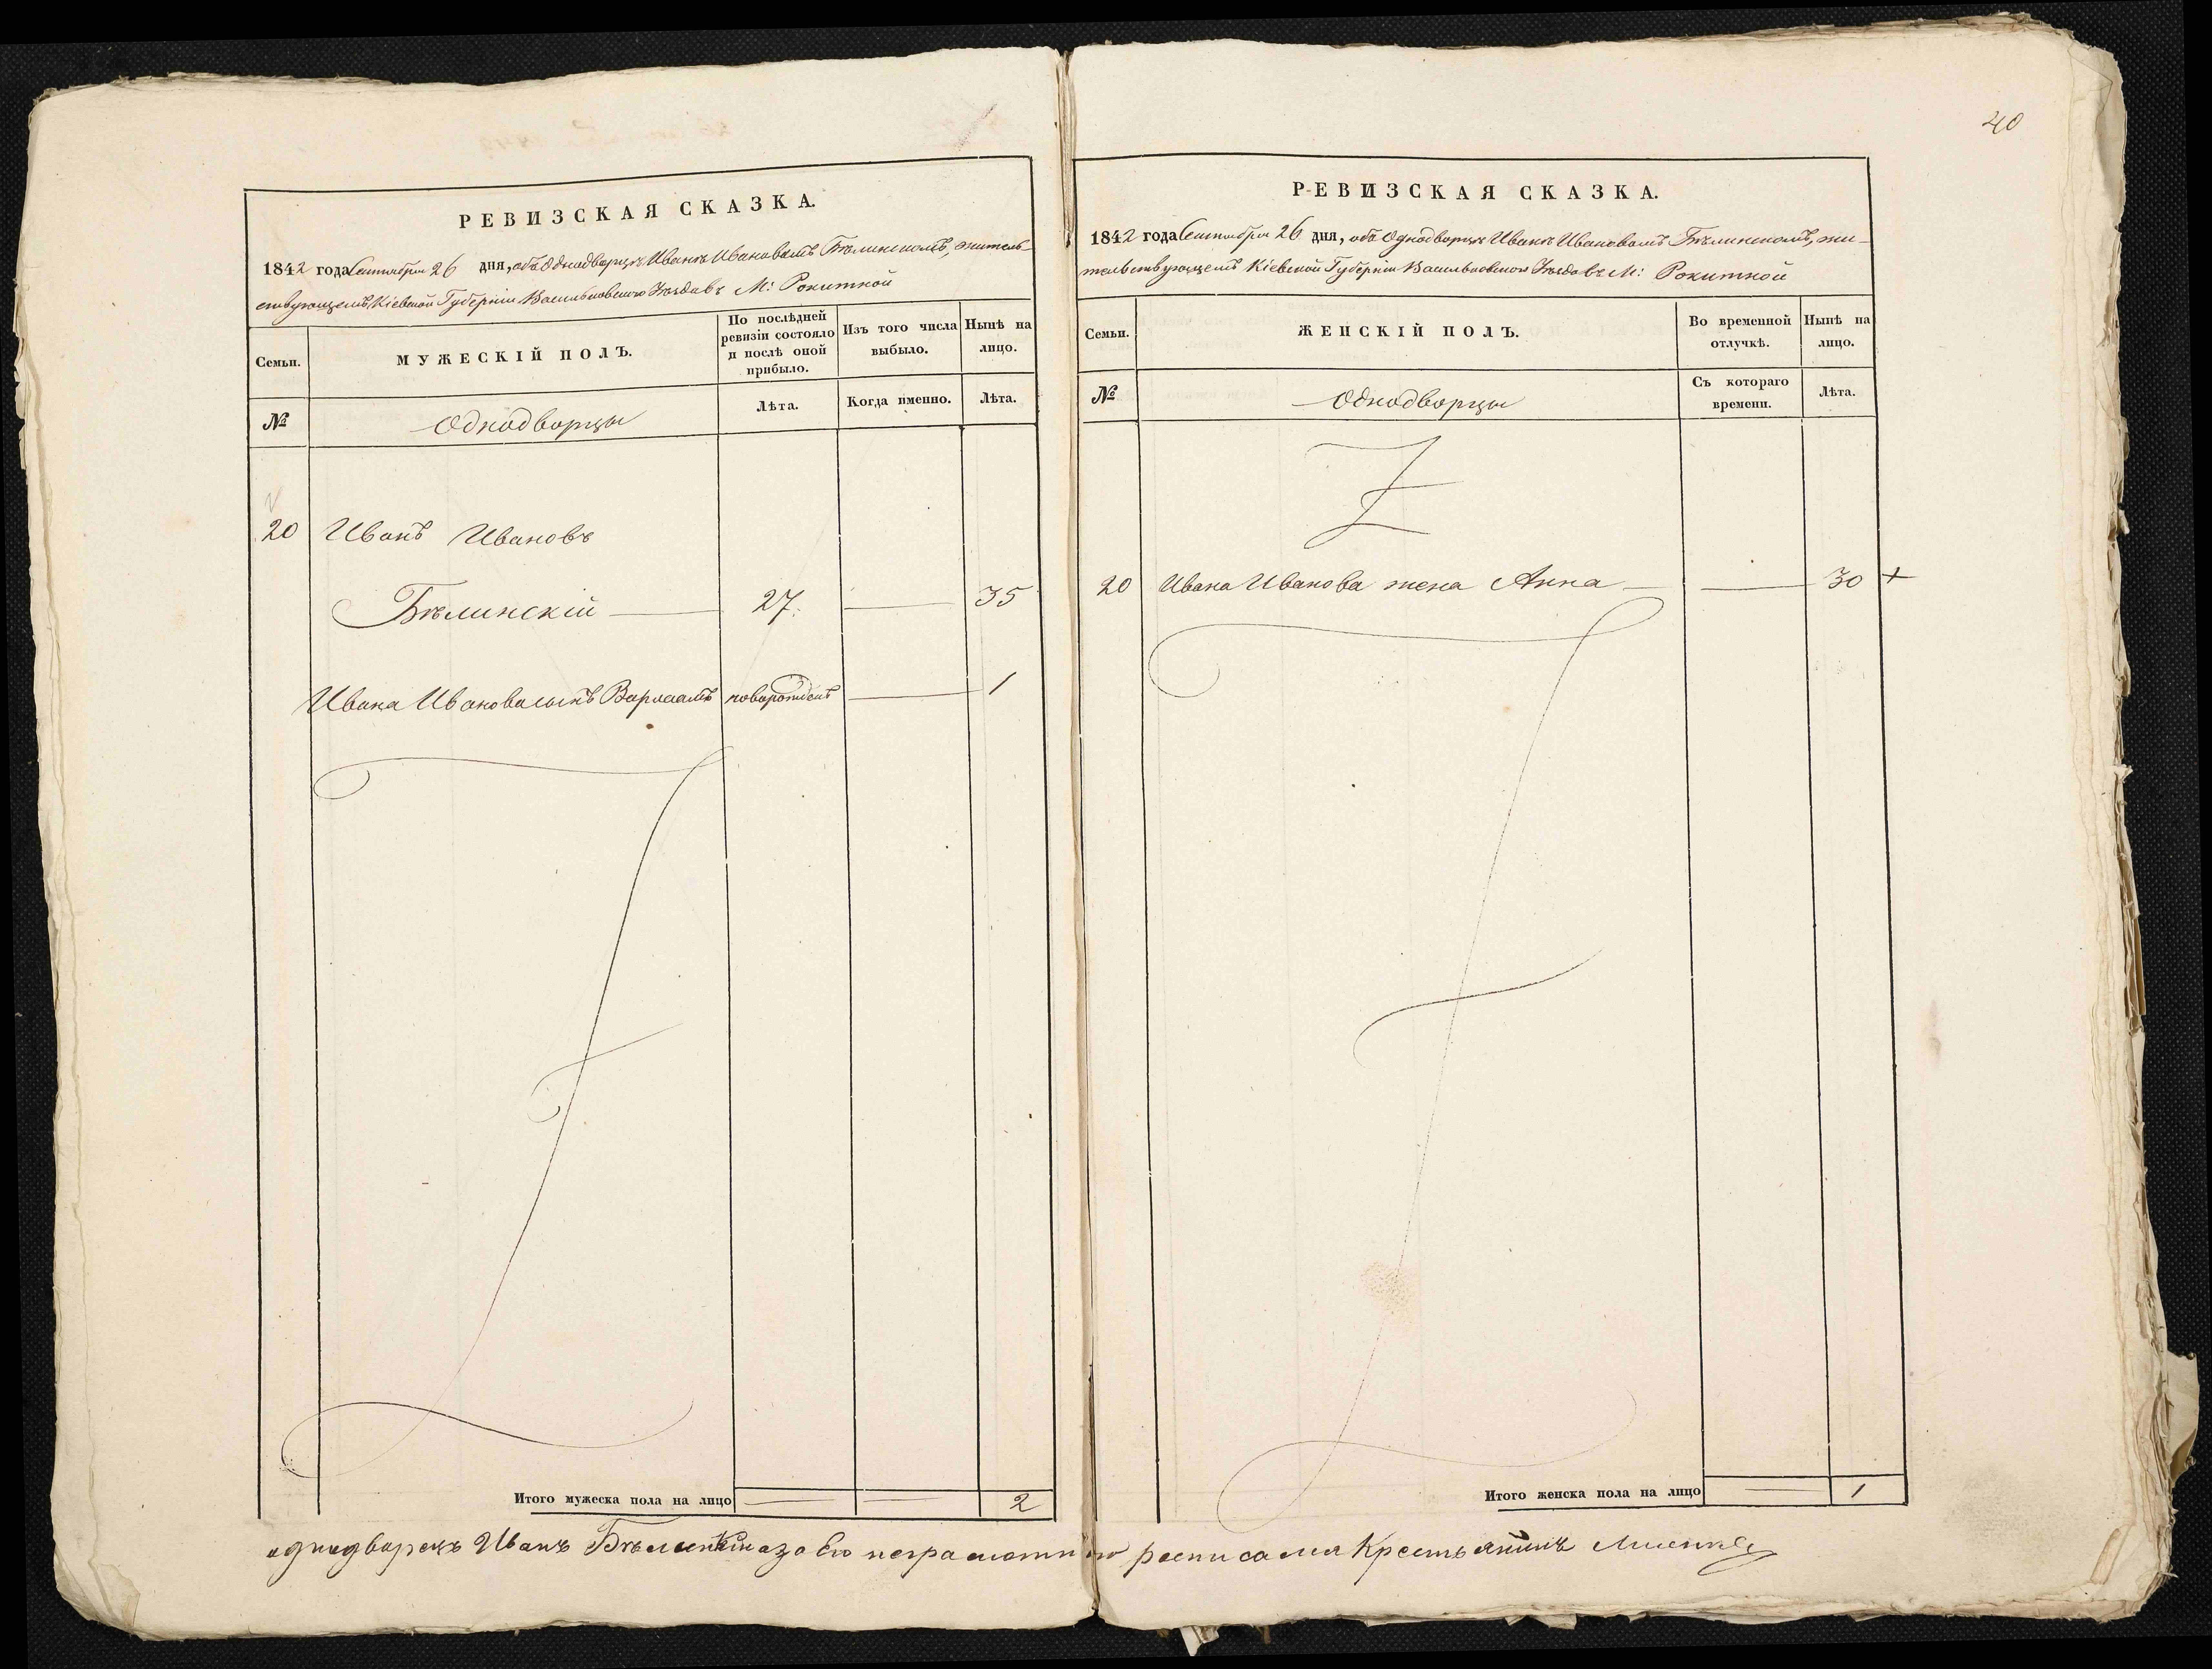 40
РЕВИЗСКАЯ СКАЗКА.
1842 года Сентября 26 дня, объ Однодворцѣ Иванѣ Ивановомъ Бѣлинскомъ, житель-
ствующемъ, Кіевской Губерніи Васильковского Уѣзда въ М: Рокитной
Семьи.
МУЖЕСКІЙ ПОЛЪ.
По послѣдней ревизіи состояло и послѣ оной прибыло.
Изъ того числа выбыло.
Нынѣ на лицо.
№
Однодворцы
Лѣта.
Когда именно.
Лѣта.
20 Иванъ Ивановъ
Бѣлинскій 27. 35
Ивана Иванова сынъ Варлаамъ новорожденъ 1
Итого мужеска пола на лицо 2
РЕВИЗСКАЯ СКАЗКА.
1842 года Сентября 26 дня, объ Однодворцѣ Иванѣ Ивановомъ Бѣлинскомъ, жи-
тельствующемъ Кіевской Губерніи Васильковского Уѣзда въ М: Рокитной
Семьи.
ЖЕНСКІЙ ПОЛЪ.
Во временной отлучкѣ.
Нынѣ на лицо.
№
Однодворцы
Съ котораго времени.
Лѣта.
20 Ивана Иванова жена Анна 30 +
Итого женска пола на лицо 1
однодворецъ Иванъ Бѣлинскій а за его неграмотного росписался Крестьянинъ